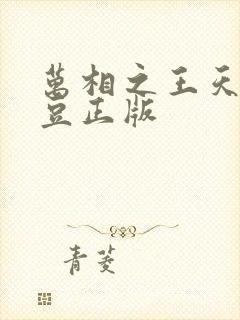 萬相之王天
豆正版
青菱